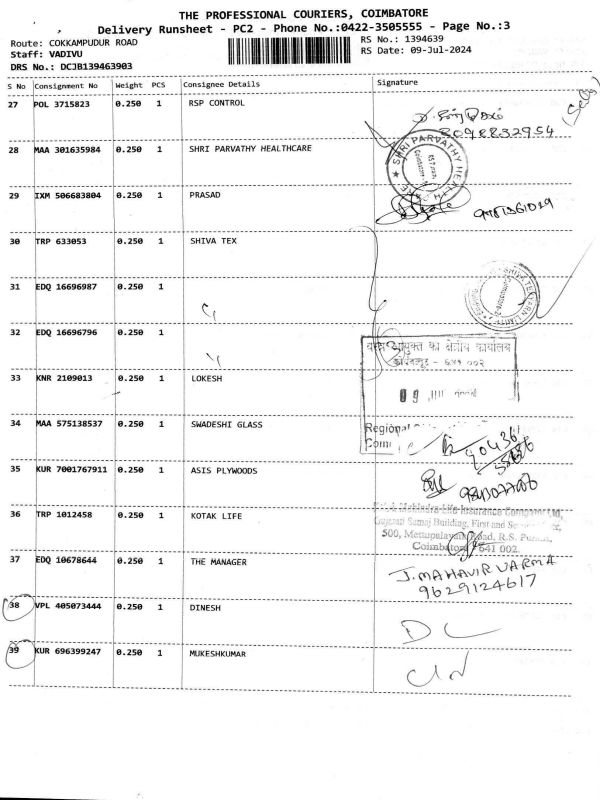 THE PROFESSIONAL COURIERS, COIMBATORE
Delivery Runsheet - PC2 - Phone No.:0422-3505555 - Page No.:3
Route: COKKAMPUDUR ROAD
RS No.: 1394639
Staff: VADIVU
RS Date: 09-Jul-2024
DRS No.: DCJB139463903
S No Consignment No Weight PCS Consignee Details Signature
27 POL 3715823 0.250 1 RSP CONTROL
8098832954
28 MAA 301635984 0.250 1 SHRI PARVATHY HEALTHCARE
SHRI PARVATHY HEALTH CARE
29 IXM 506683804 0.250 1 PRASAD
30 TRP 633053 0.250 1 SHIVA TEX
31 EDQ 16696987 0.250 1
32 EDQ 16696796 0.250 1
आयुक्त का क्षेत्रीय कार्यालय
33 KNR 2109013 0.250 1 LOKESH
09
34 MAA 575138537 0.250 1 SWADESHI GLASS
Regional
90436
35 KUR 7001767911 0.250 1 ASIS PLYWOODS
36 TRP 1012458 0.250 1 KOTAK LIFE
Mahindra Life Insurance Company Ltd,
Gujarati Samaj Building, First and
500, Mettupalayam Road, R.S. Puram,
Coimbatore 641 002.
37 EDQ 10678644 0.250 1 THE MANAGER
J. MAHAVIR VARMA
9629124617
38 VPL 405073444 0.250 1 DINESH
DL
39 KUR 696399247 0.250 1 MUKESHKUMAR